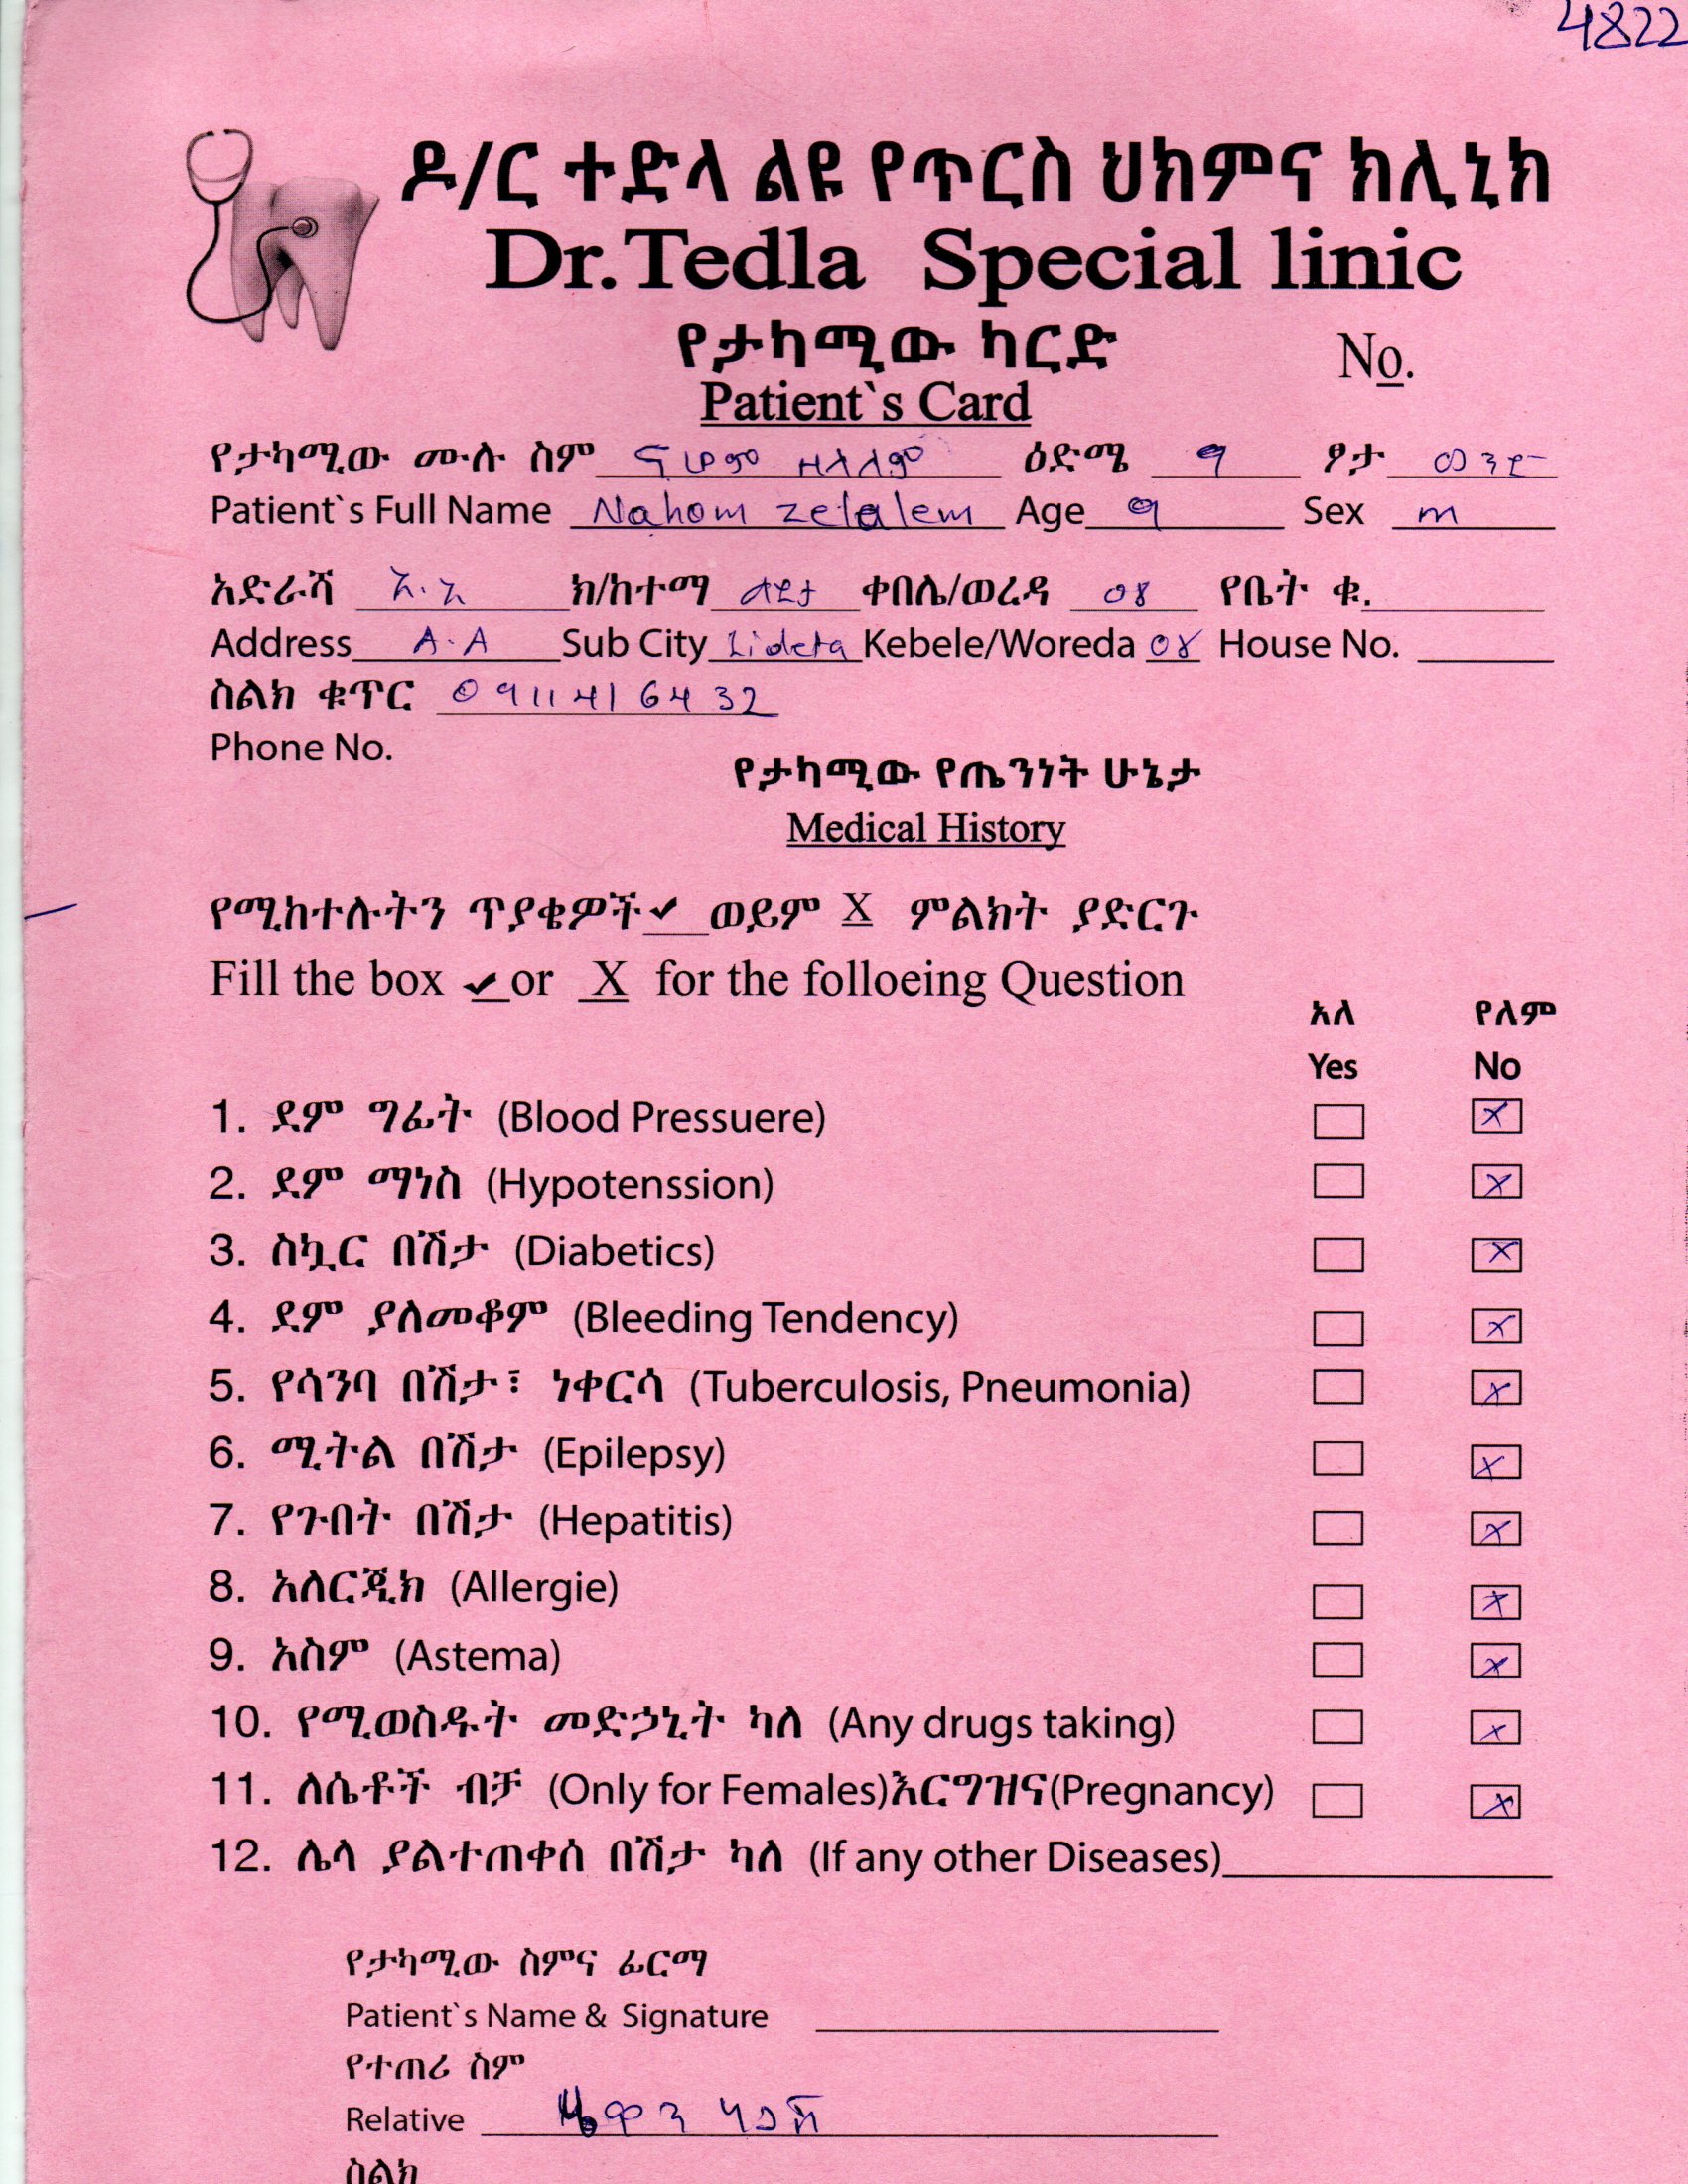 4822
ዶ/ር ተድላ ልዩ የጥርስ ህክምና ክሊኒክ
Dr.Tedla Special linic
የታካሚው ካርድ
No.
Patient`s Card
የታካሚው ሙሉ ስም ናሆም ዘላለም ዕድሜ ዓ ፆታ ወንድ
Patient`s Full Name Nahom zelalem Age 9 Sex m
አድራሻ አ.አ ክ/ከተማ ልደታ ቀበሌ/ወረዳ 08 የቤት ቁ.
Address A.A Sub City Lideta Kebele/Woreda 08 House No.
ስልክ ቁጥር 0911416432
Phone No.
የታካሚው የጤንነት ሁኔታ
Medical History
የሚከተሉትን ጥያቄዎች ✔ ወይም X ምልክት ያድርጉ
Fill the box ✔ or X for the folloeing Question
አለ የለም
Yes No
1. ደም ግፊት (Blood Pressuere) X
2. ደም ማነስ (Hypotenssion) X
3. ስኳር በሽታ (Diabetics) X
4. ደም ያለመቆም (Bleeding Tendency) X
5. የሳንባ በሽታ፣ ነቀርሳ (Tuberculosis, Pneumonia) X
6. ሚትል በሽታ (Epilepsy) X
7. የጉበት በሽታ (Hepatitis) X
8. አለርጂክ (Allergie) X
9. አስም (Astema) X
10. የሚወስዱት መድኃኒት ካለ (Any drugs taking) X
11. ለሴቶች ብቻ (Only for Females)እርግዝና(Pregnancy) X
12. ሌላ ያልተጠቀሰ በሽታ ካለ (If any other Diseases)
የታካሚው ስምና ፊርማ
Patient`s Name & Signature
የተጠሪ ስም
Relative
ስልክ